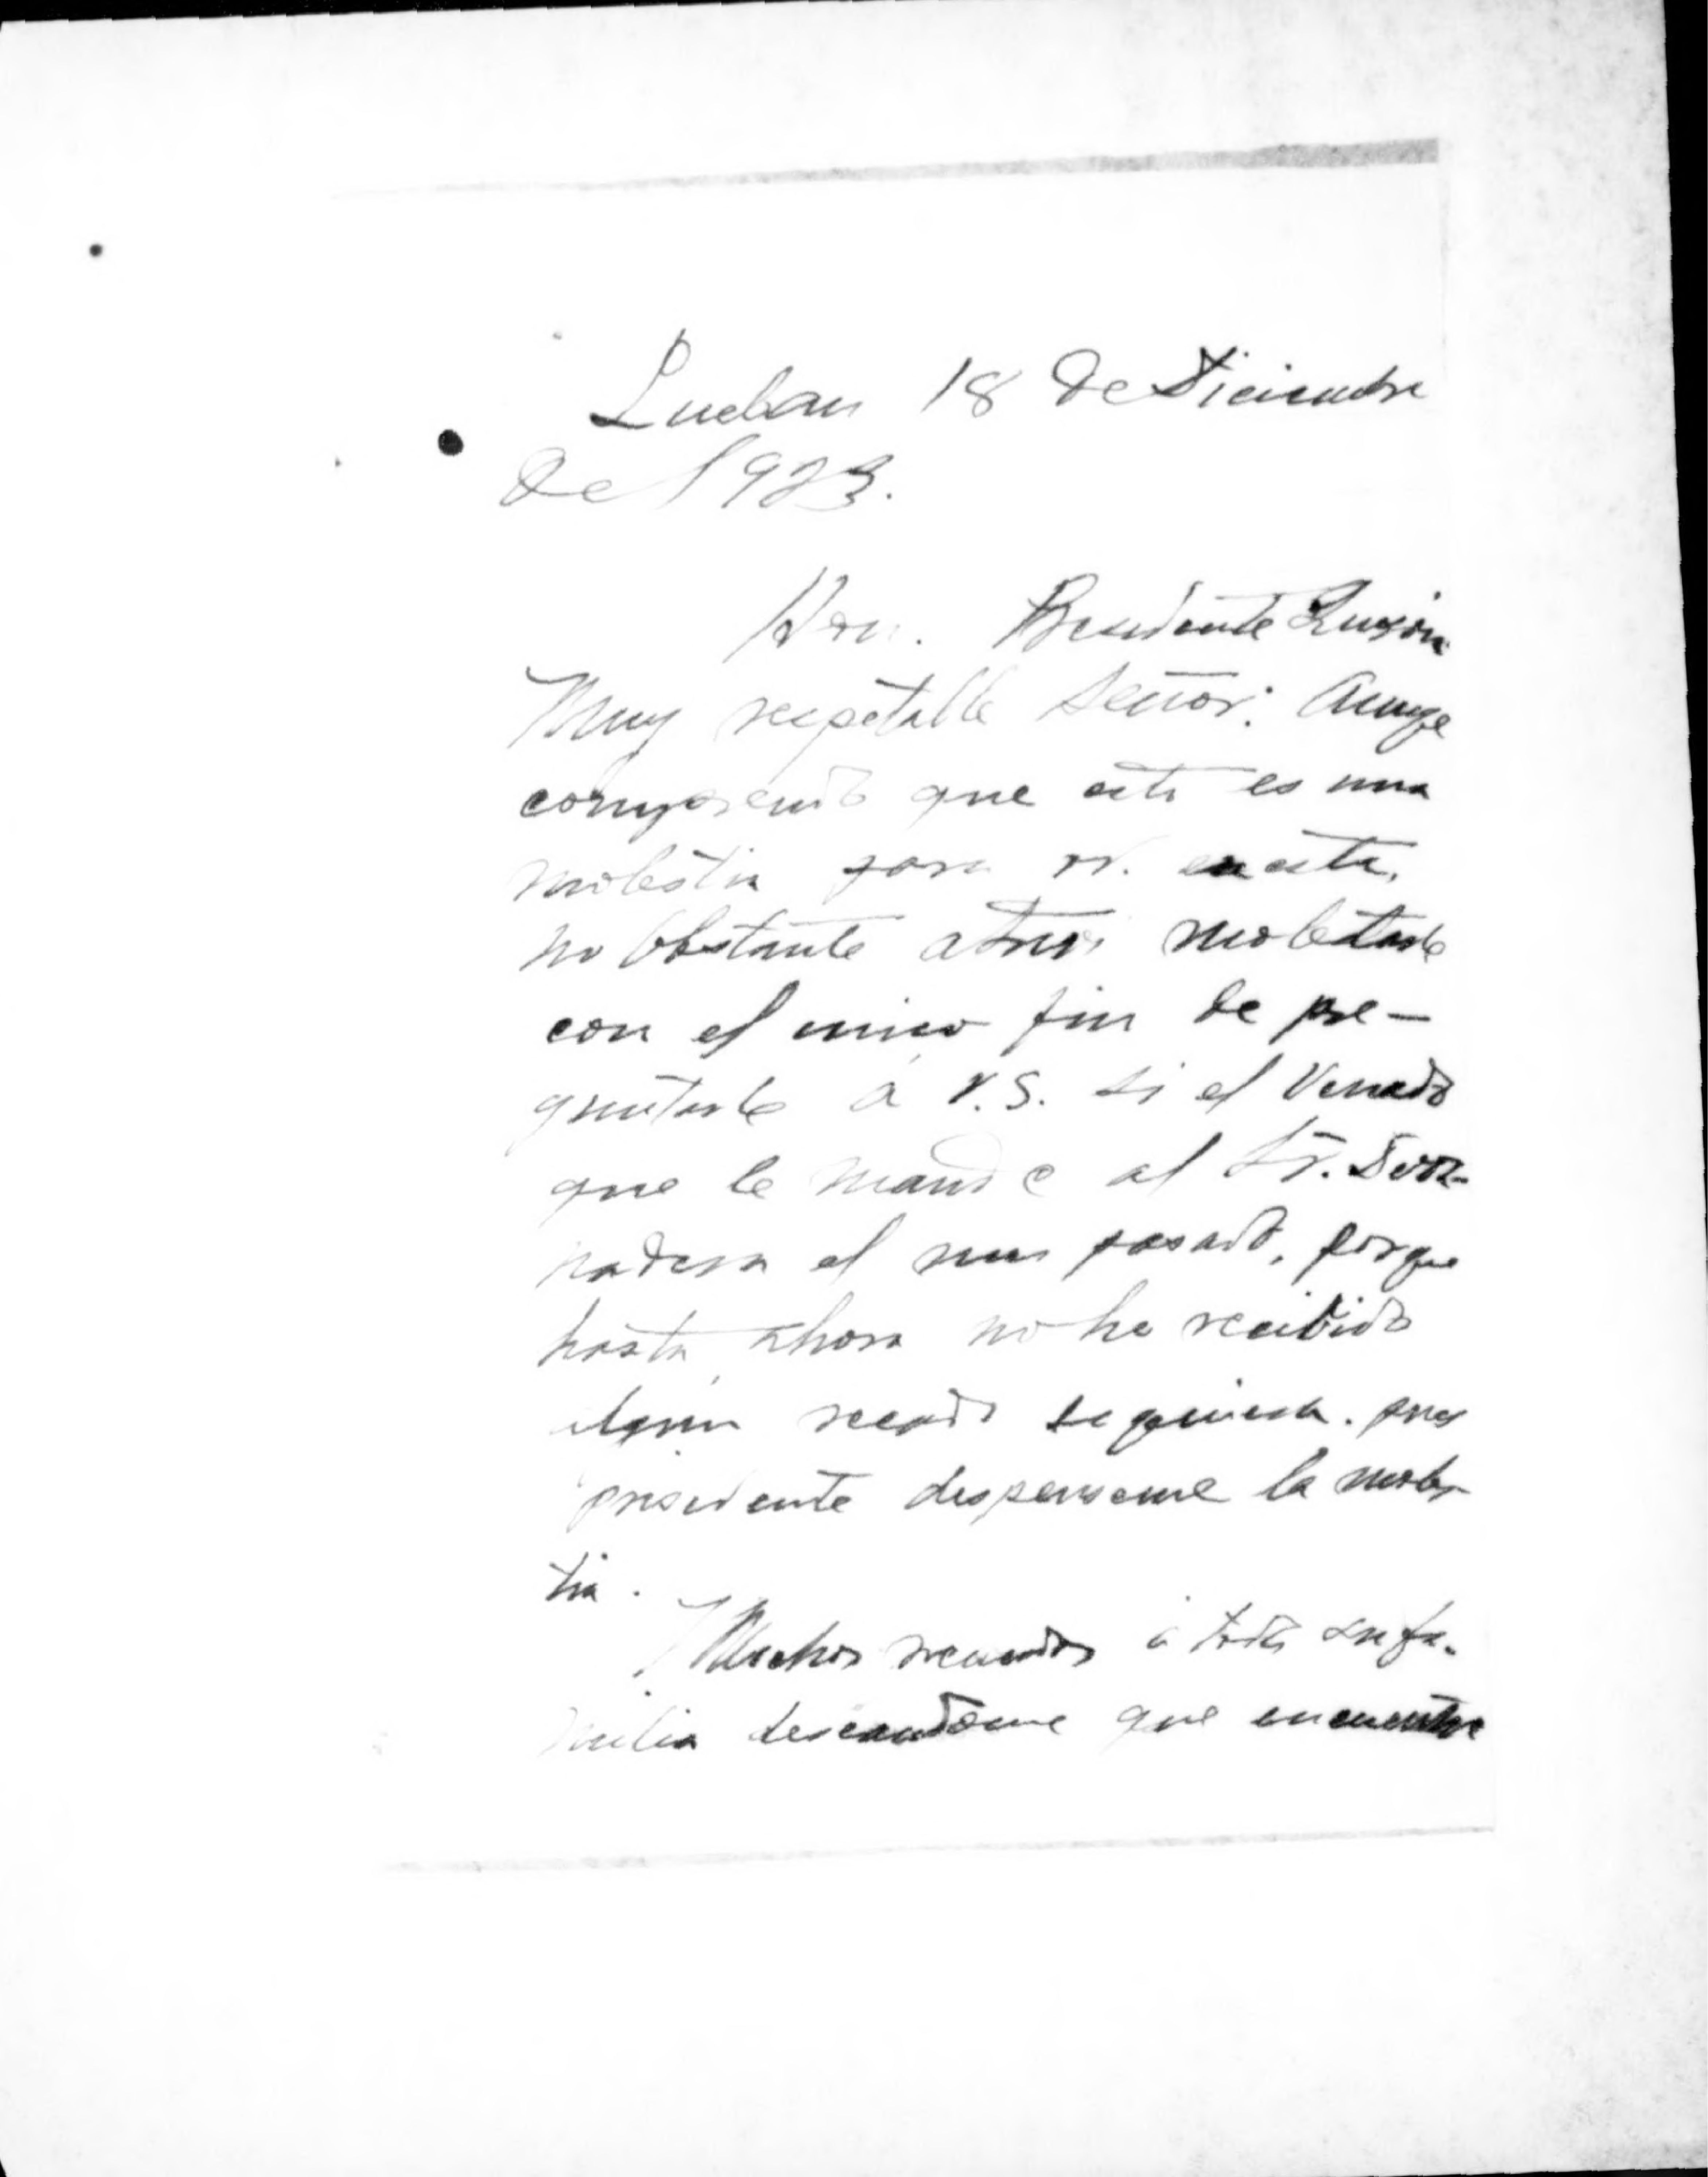 Lucban 18 de Diciembre
de 1923.
Hon. Presidente Quezon
Muy respetable Señor: Aunqe
comprendo que esto es una
molestia para V. en esta,
no obstante atrevi molestarle
con el unico fin de pre-
guntarle á V.S. si el Venado
que le mande al Sr. Gober-
nadora el mes pasado, porque
hasta ahora no he recibido
algun recado siquiera. pues
presidente dispenseme la moles-
tia.
Muchos recuerdos á toda su fa-
milia deseandome que encuentre